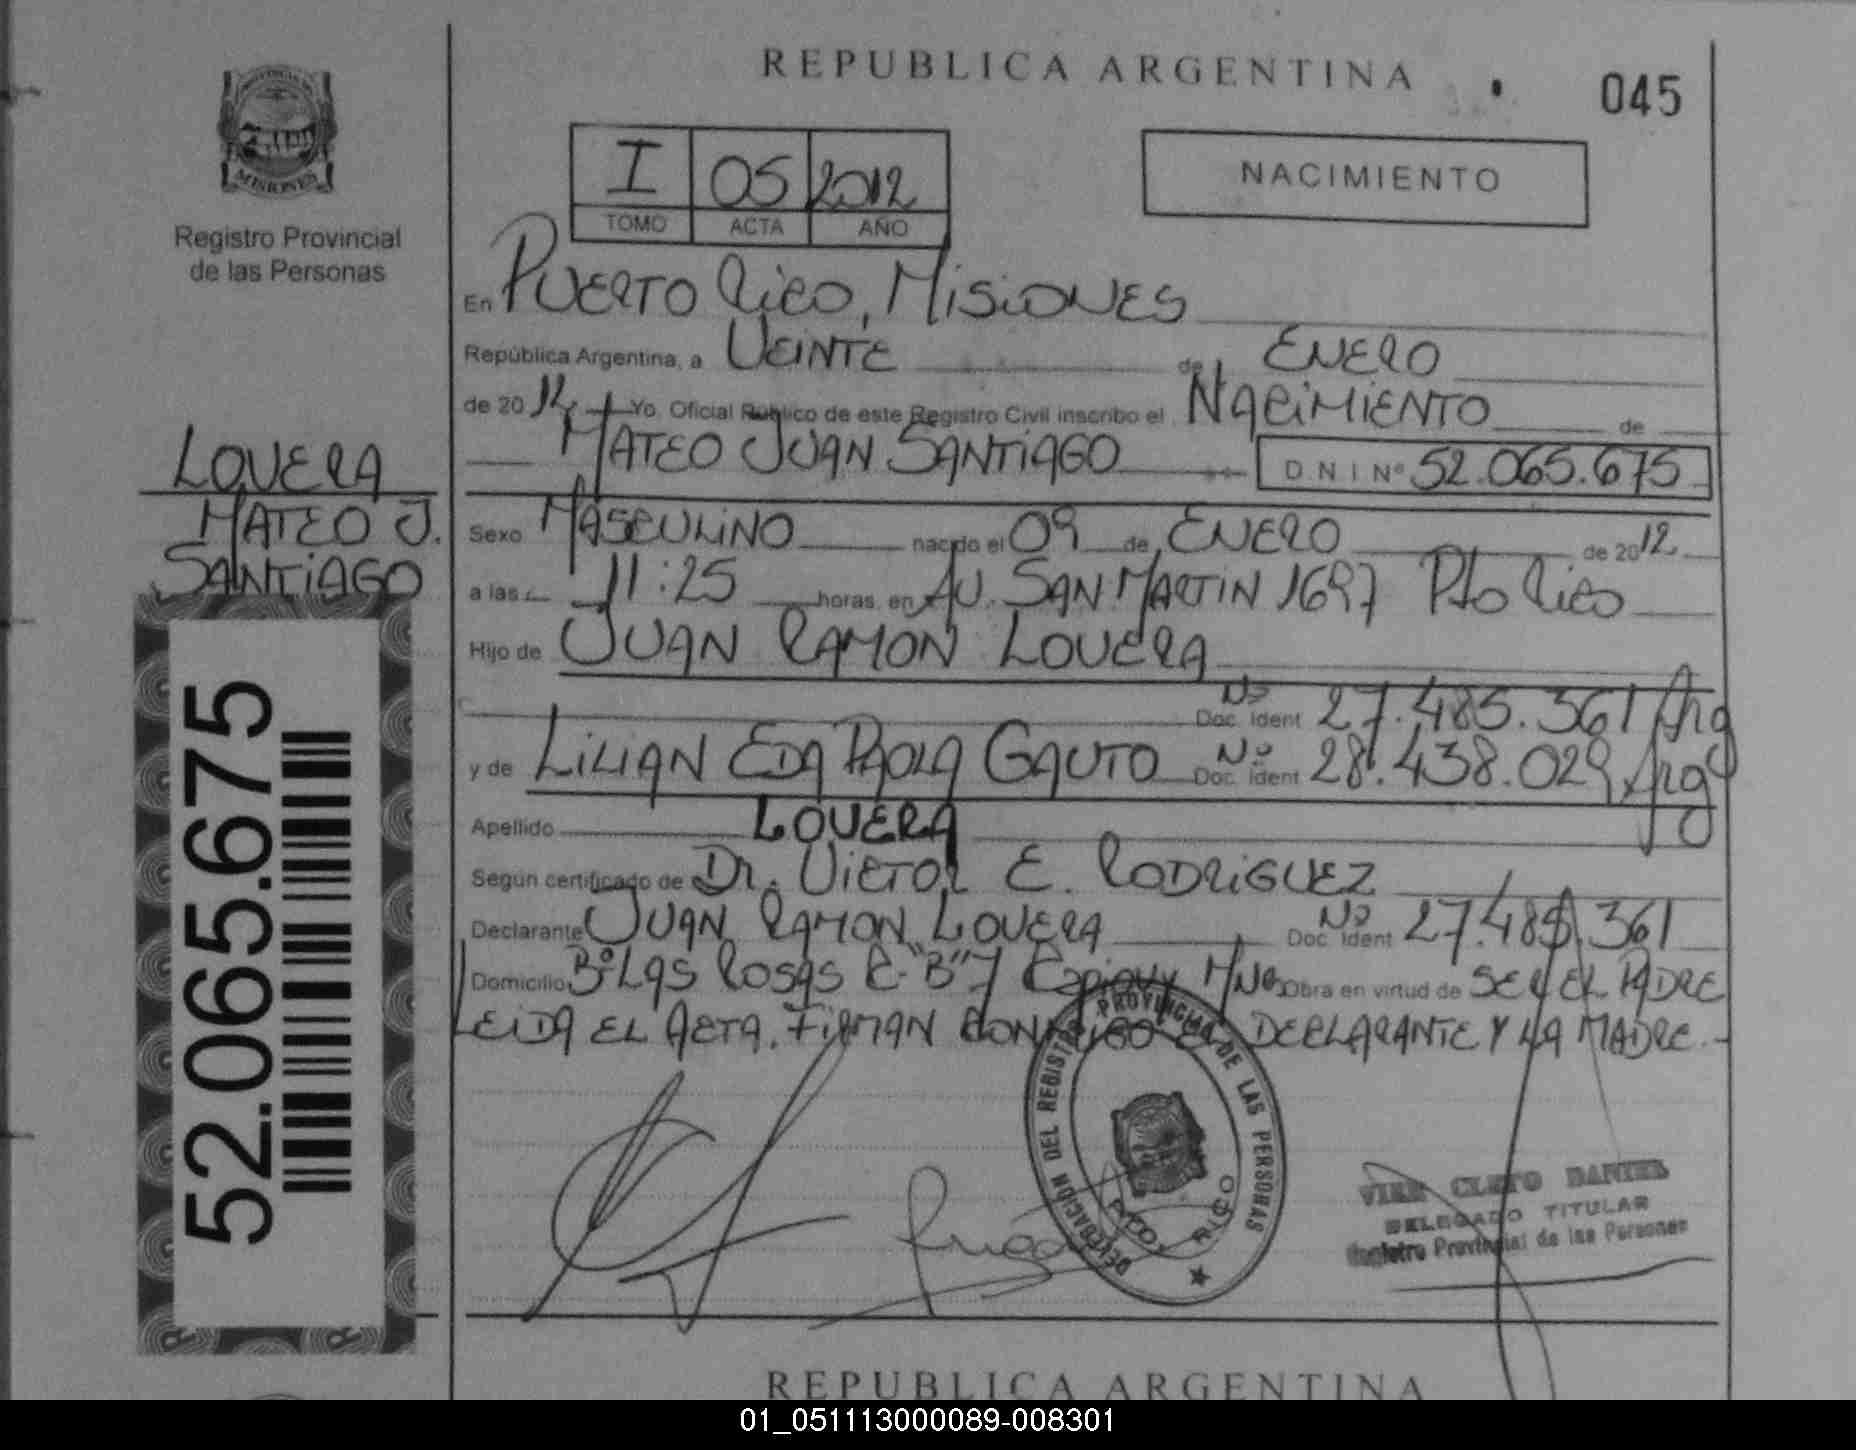 REPUBLICA ARGENTINA
045
MISIONES
Registro Provincial
de las Personas
I 05 2012
TOMO ACTA AÑO
NACIMIENTO
En PUERTO RICO, MISIONES
República Argentina, a VEINTE de ENERO
de 2012 Yo, Oficial Público de este Registro Civil inscribo el NACIMIENTO de
MATEO JUAN SANTIAGO D.N.I Nº 52.065.675
LOVERA
MATEO J.
SANTIAGO
Sexo MASCULINO nacido el 09 de ENERO de 2012
a las 11:25 horas, en AV. SAN MARTIN 1697 Pto Rico
Hijo de JUAN RAMON LOVERA
Nº Doc. Ident 27.485.361 Arg
y de LILIAN EDA PAOLA GAUTO Nº Doc. Ident 28.438.029 Arg
Apellido LOVERA
Según certificado de Dr. VICTOR E. RODRIGUEZ
Declarante JUAN RAMON LOVERA Nº Doc. Ident 27.485.361
Domicilio Bº LAS ROSAS C-"B" 7 Capiovy Mnes Obra en virtud de SER EL PADRE
LEIDA EL ACTA, FIRMAN CONMIGO EL DECLARANTE Y LA MADRE.-
52.065.675
DELEGACION DEL REGISTRO PROVINCIAL DE LAS PERSONAS
PTO. RICO
CLETO DANIEL
DELEGADO TITULAR
Registro Provincial de las Personas
REPUBLICA ARGENTINA
01_051113000089-008301